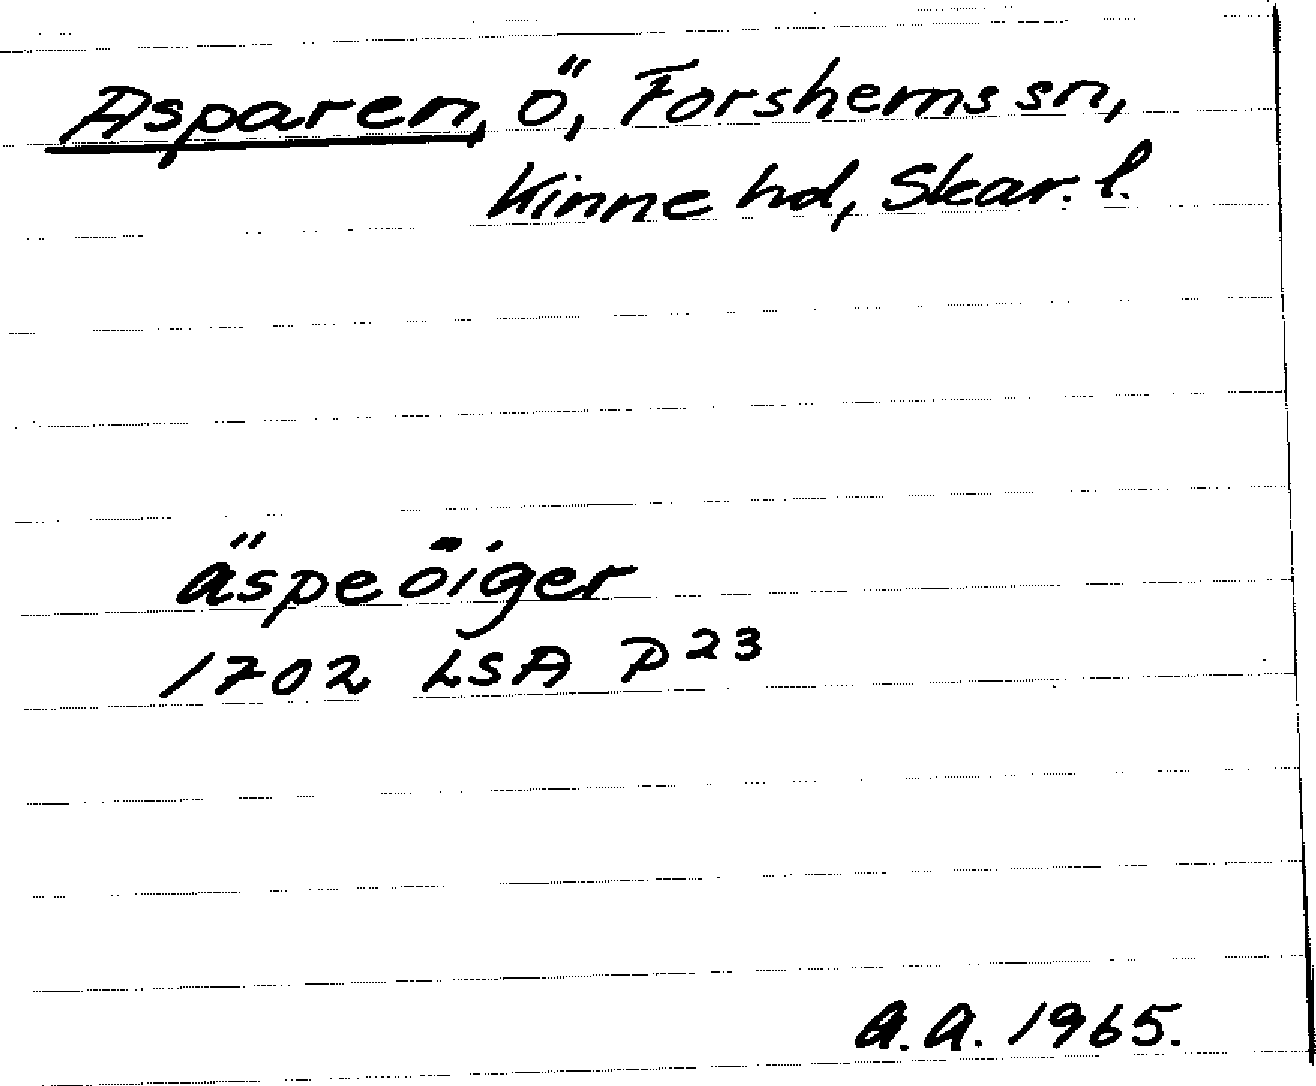 Asparen, ö, Forshems sn,
Kinne hd, Skar. l.
äspeöiger
1702 LSA P23
a.a. 1965.